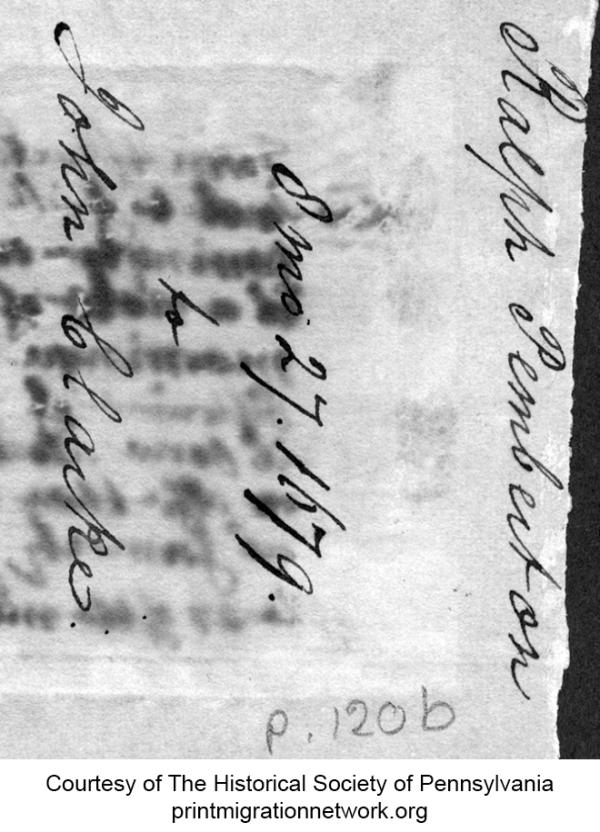 Ralph Pemberton
8 mo. 27. 1679.
to
John Clarke.
p. 120b
Courtesy of The Historical Society of Pennsylvania
printmigrationnetwork.org